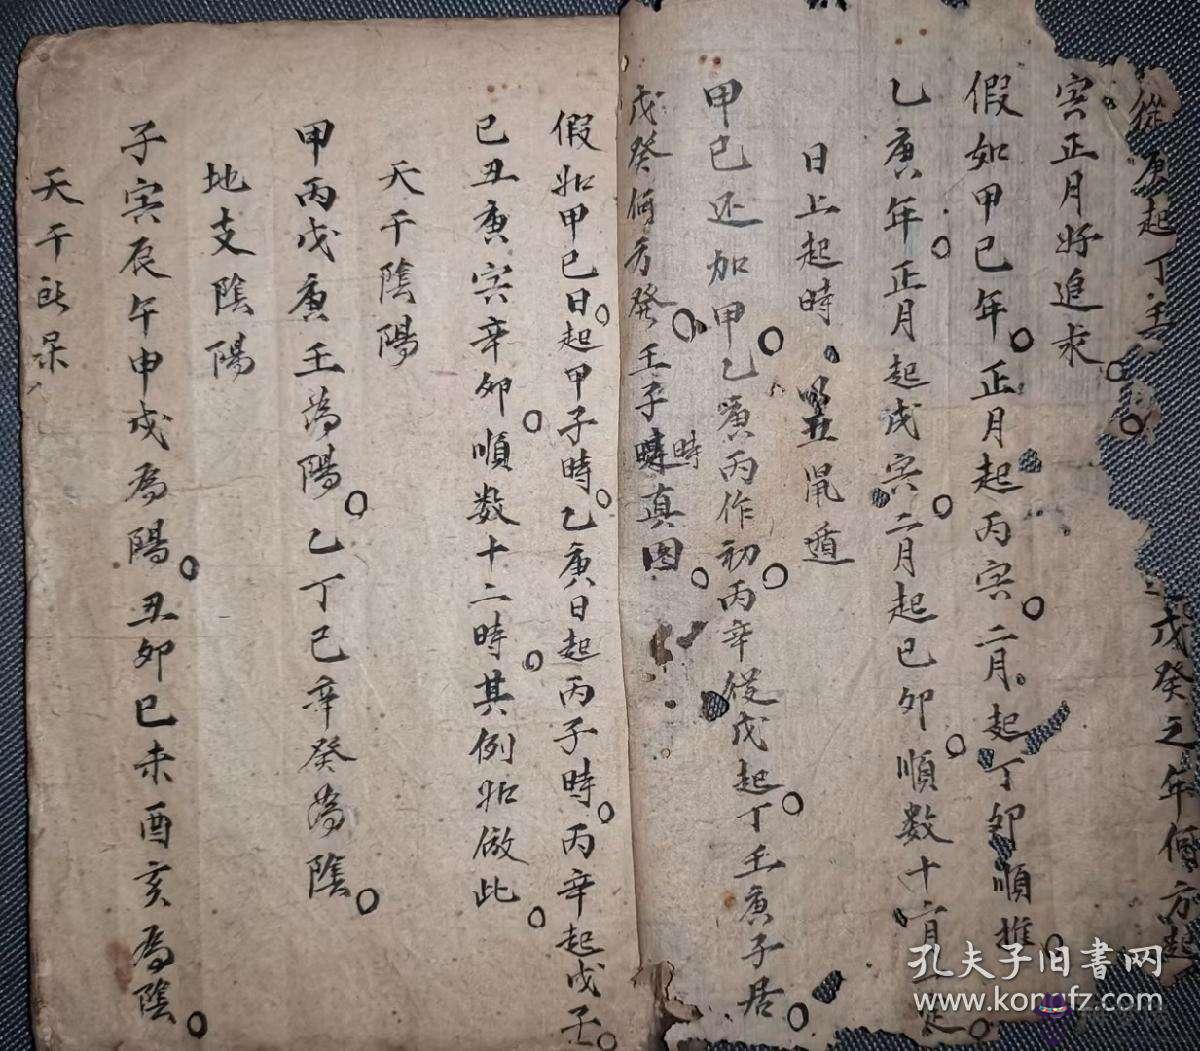 從庚起丁壬
戊癸之年何方起
寅正月好追求
假如甲己年正月起丙寅二月起丁卯順推
乙庚年正月起戊寅二月起己卯順数十二月
日上起時
鼠遁
甲己还加甲乙庚丙作初丙辛従戊起丁壬庚子居
戊癸何方發壬子時真圖
假如甲己日起甲子時乙庚日起丙子時丙辛起戊子
己丑庚寅辛卯順数十二時其例如倣此
天干陰陽
甲丙戊庚壬為陽乙丁己辛癸為陰
地支陰陽
子寅辰午申戌為陽丑卯巳未酉亥為陰
天干
孔夫子旧書网
www.kongfz.com